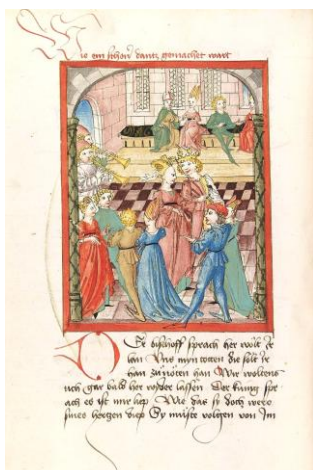 Wie ein schon dantz gemachet wart
Der bischoff sprach her wolt Ir
lan Uns myn totten die solt Ir
han
uch gar bald her wider lassen Der kunig spr
ach es ist mir liep Wie das sy doch were
sines hertzen diep Sy muste volgen von Im